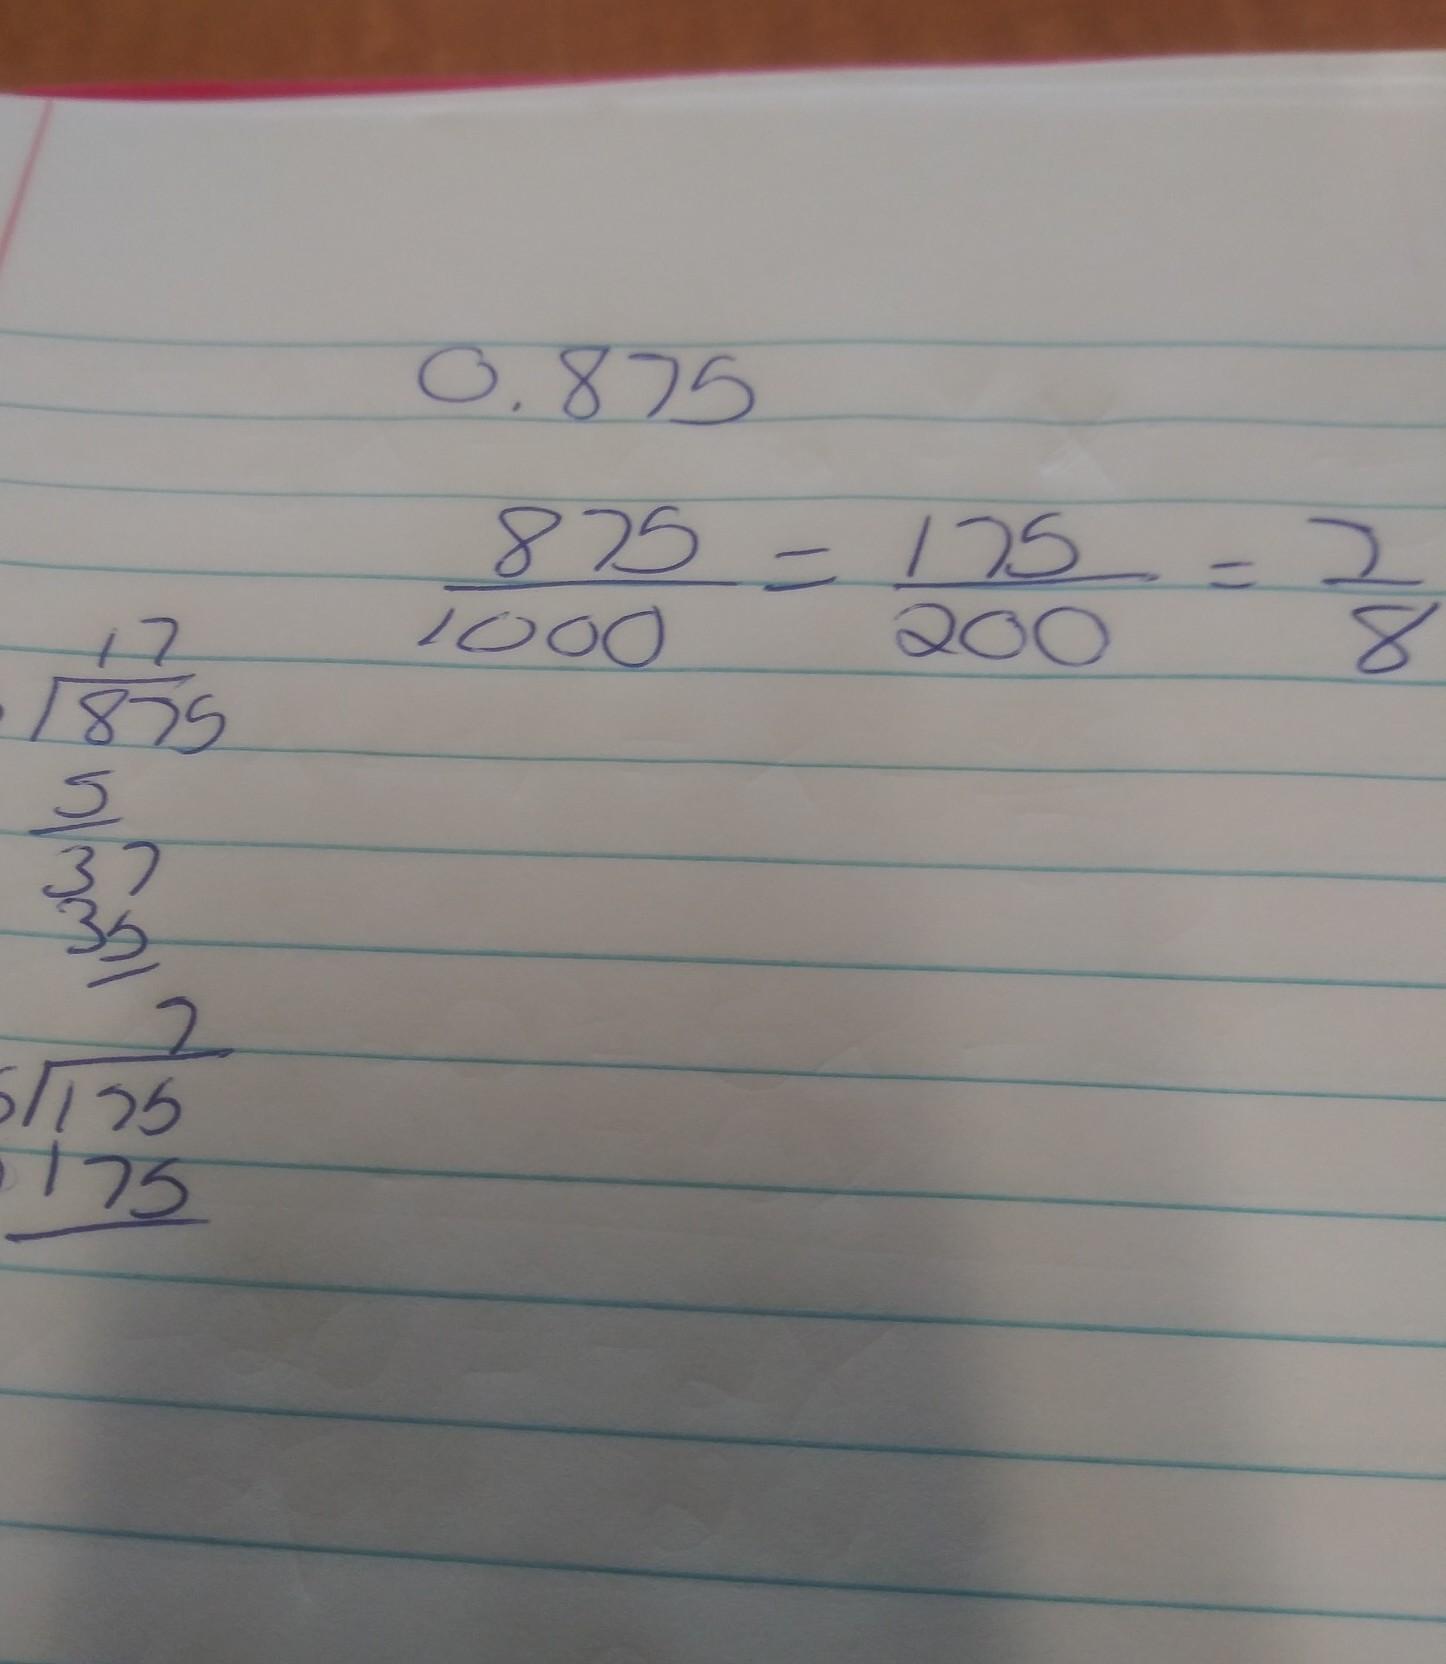 0.875
875/1000 = 175/200 = 7/8
17
875
5
37
35
7
175
175